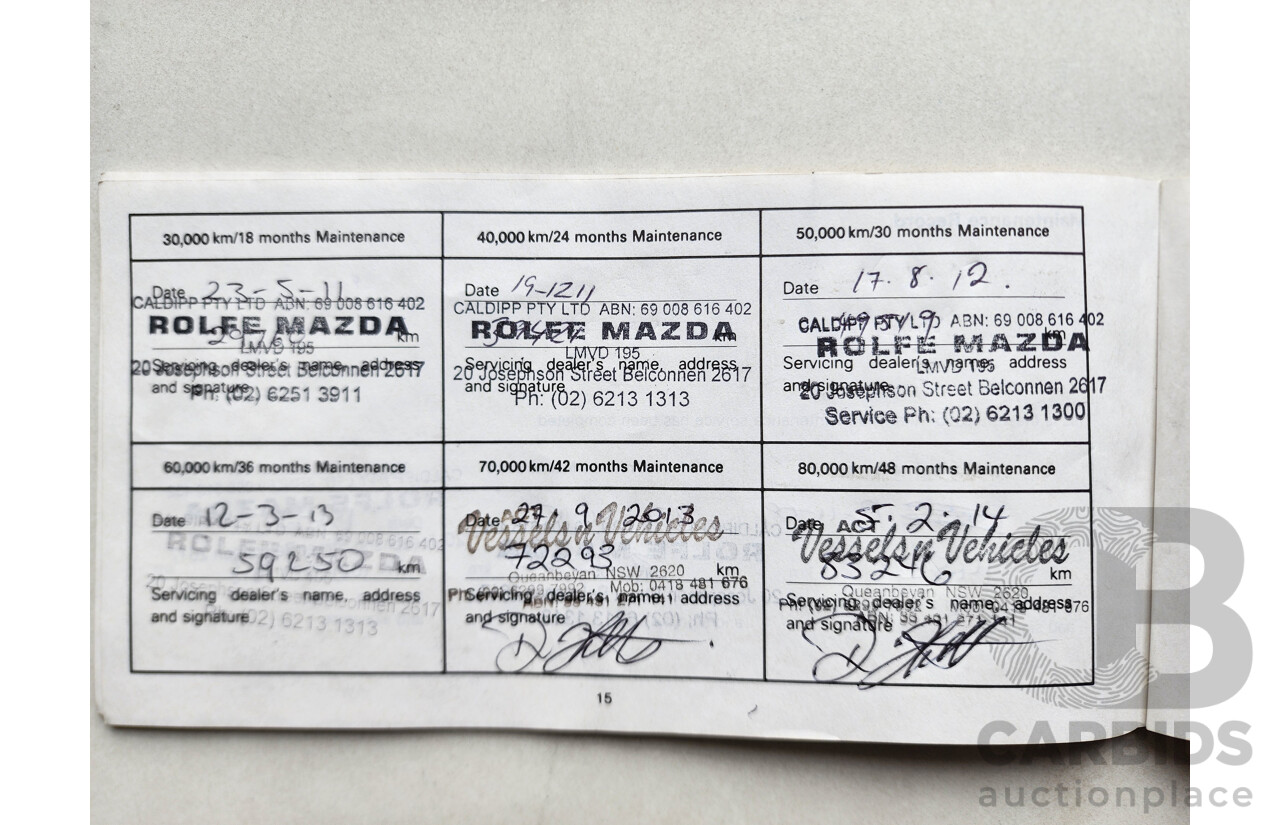 30,000 km/18 months Maintenance
Date 23-5-11
CALDIPP PTY LTD ABN: 69 008 616 402
ROLFE MAZDA
km
LMVD 195
Servicing dealer's name, address
20 Josephson Street Belconnen 2617
and signature
Ph: (02) 6251 3911
40,000 km/24 months Maintenance
Date 19-12 11
CALDIPP PTY LTD ABN: 69 008 616 402
ROLFE MAZDA
km
LMVD 195
Servicing dealer's name, address
20 Josephson Street Belconnen 2617
and signature
Ph: (02) 6213 1313
50,000 km/30 months Maintenance
Date 17.8.12.
CALDIPP PTY LTD ABN: 69 008 616 402
km
ROLFE MAZDA
Servicing dealer's name, address
LMVD 195
and signature
20 Josephson Street Belconnen 2617
Service Ph: (02) 6213 1300
60,000 km/36 months Maintenance
Date 12-3-13
ROLFE MAZDA
59250 km
Servicing dealer's name, address
and signature
Ph: (02) 6213 1313
70,000 km/42 months Maintenance
Date 27.9.2013
Vessels n Vehicles
72293 km
Queanbeyan NSW 2620
Mob: 0418 481 676
Servicing dealer's name, address
and signature
80,000 km/48 months Maintenance
Date 5.2.14
ACT
Vessels n Vehicles
83246 km
Queanbeyan NSW 2620
Servicing dealer's name, address
and signature
15
CARBIDS
auctionplace